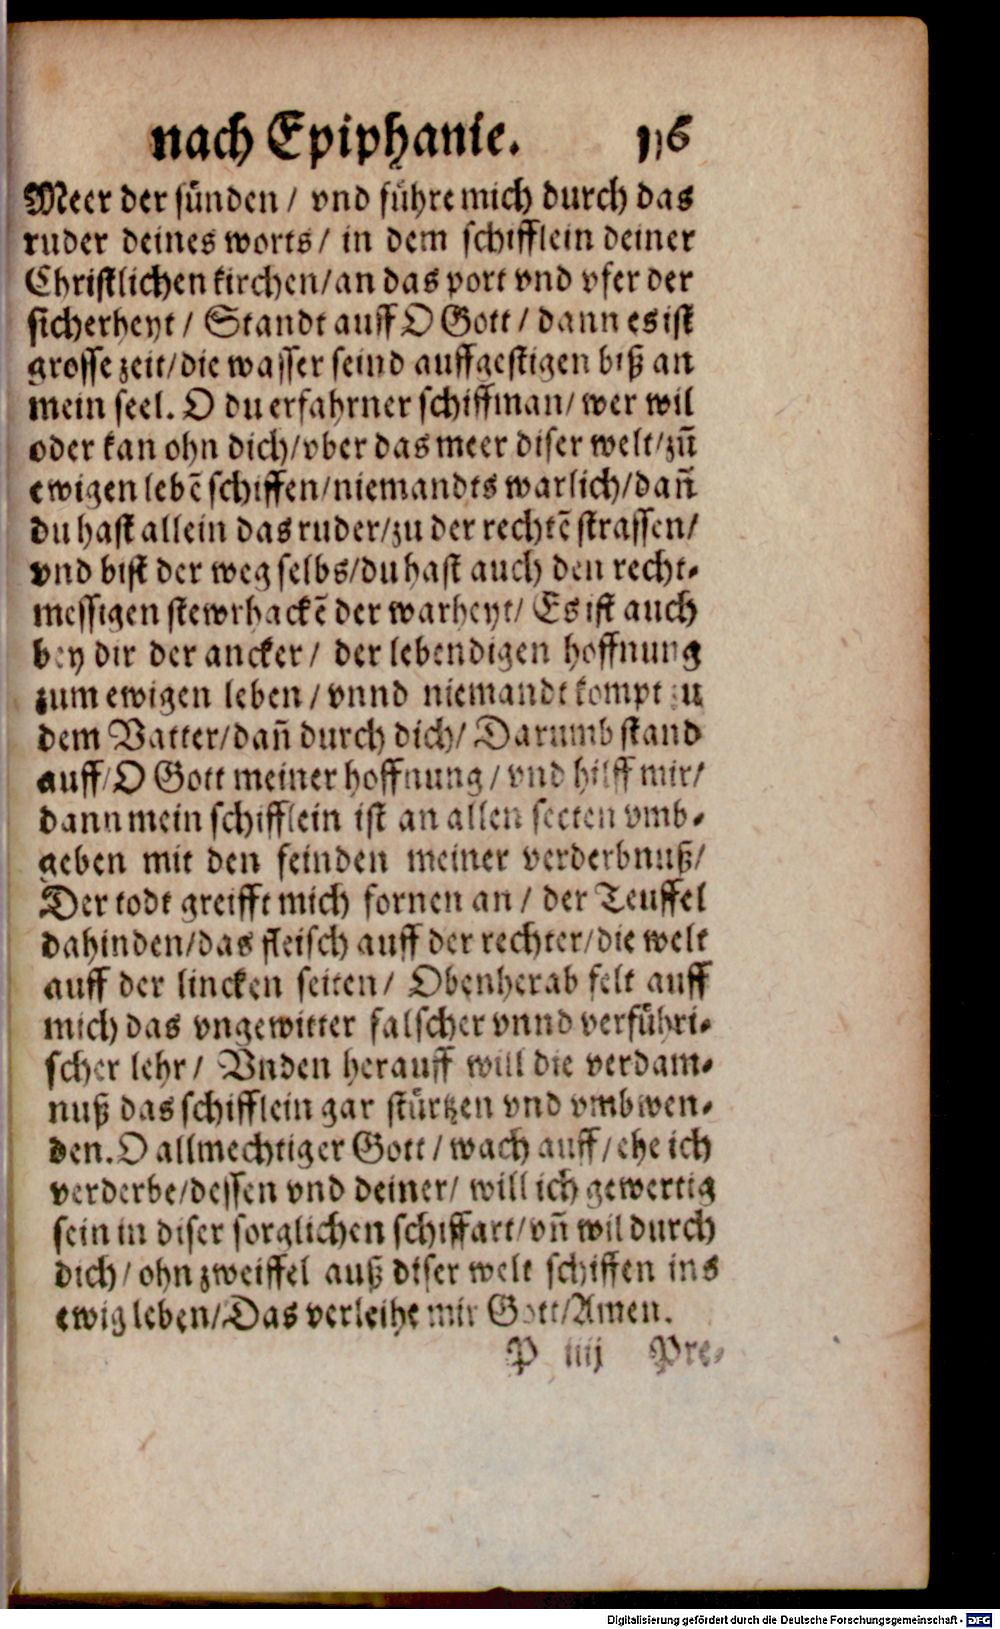 nach Epiphanie. 116
Meer der sünden / vnd führe mich durch das
ruder deines worts / in dem schifflein deiner
Christlichen kirchen/an das port vnd vfer der
sicherheyt / Standt auff O Gott / dann es ist
grosse zeit/die wasser seind auffgestigen biß an
mein seel. O du erfahrner schiffman/ wer wil
oder kan ohn dich/vber das meer diser welt/zū
ewigen lebē schiffen/niemandts warlich/dañ
du hast allein das ruder/zu der rechtē strassen/
vnd bist der weg selbs/du hast auch den recht-
messigen stewrhackē der warheyt/ Es ist auch
bey dir der ancker / der lebendigen hoffnung
zum ewigen leben / vnnd niemandt kompt zu
dem Vatter/dañ durch dich/ Darumb stand
auff/O Gott meiner hoffnung / vnd hilff mir/
dann mein schifflein ist an allen secten vmb-
geben mit den feinden meiner verderbnuß/
Der todt greifft mich fornen an / der Teuffel
dahinden/das fleisch auff der rechter/die welt
auff der lincken seiten/ Obenherab felt auff
mich das vngewitter falscher vnnd verführi-
scher lehr / Vnden herauff will die verdam-
nuß das schifflein gar stürtzen vnd vmbwen-
den. O allmechtiger Gott / wach auff/ehe ich
verderbe/dessen vnd deiner/ will ich gewertig
sein in diser sorglichen schiffart/vñ wil durch
dich/ ohn zweiffel auß diser welt schiffen ins
ewig leben/Das verleihe mir Gott/Amen.
P iiij Pre-
Digitalisierung gefördert durch die Deutsche Forschungsgemeinschaft - DFG